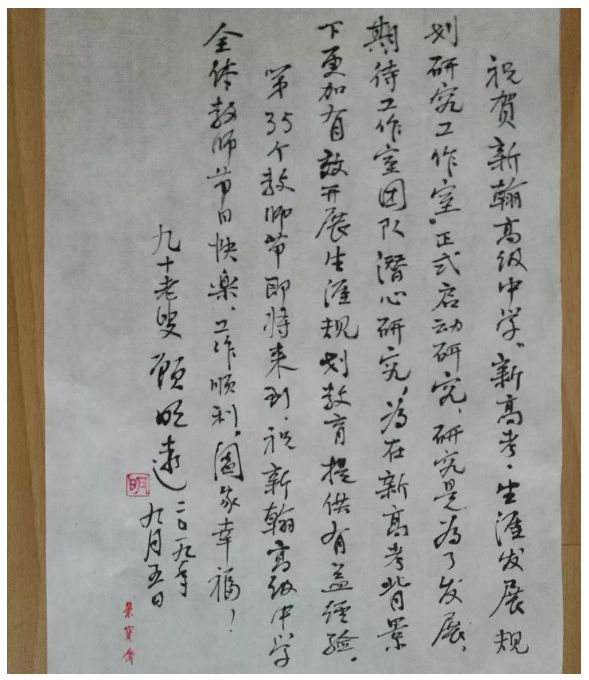 祝贺新翰高级中学“新高考·生涯发展规
划研究工作室”正式启动研究，研究是为了发展，
期待工作室团队潜心研究，为在新高考背景
下更加有效开展生涯规划教育提供有益经验。
第35个教师节即将来到，祝新翰高级中学
全体教师节日快乐、工作顺利，阖家幸福！
九十老叟 顾明远
二〇一九年
九月五日
明
荣宝斋